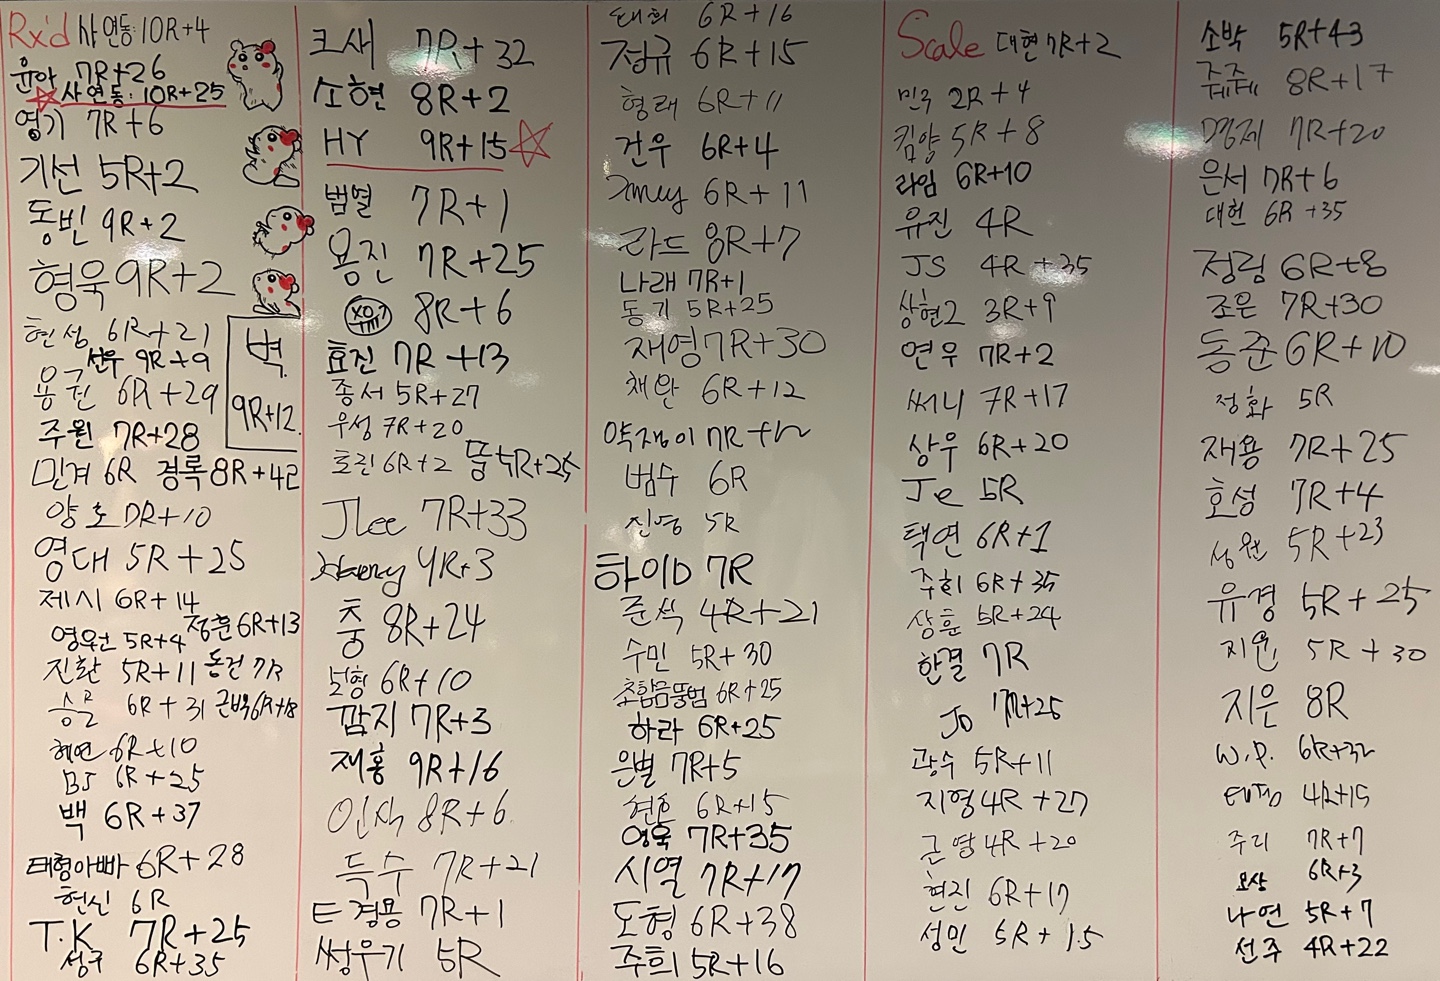 Rx'd 사연동: 10R+4
윤아 7R+26
사연동: 10R+25
영기 7R+6
기선 5R+2
동빈 9R+2
형욱 9R+2
현성 6R+21
선우 9R+9
용권 6R+29
벽 9R+12
주원 7R+28
민계 6R 경록 8R+42
양호 DR+10
영대 5R+25
제시 6R+14
정훈 6R+13
영우 5R+4
진환 5R+11 동건 7R
6R+31 근백 6R+18
혜연 6R+10
BJ 6R+25
백 6R+37
태형아빠 6R+28
현신 6R
T.K 7R+25
성구 6R+35
크새 7R+32
소현 8R+2
HY 9R+15
범열 7R+1
용진 7R+25
XO 8R+6
효진 7R+13
종서 5R+27
우성 7R+20
호린 6R+2 뚬 4R+25
Jlee 7R+33
4R+3
충 8R+24
보형 6R+10
깜지 7R+3
재홍 9R+16
인삭 8R+6
득수 7R+21
E경용 7R+1
썽우기 5R
태희 6R+16
정규 6R+15
형래 6R+11
건우 6R+4
6R+11
라드 8R+7
나래 7R+1
동기 5R+25
재영 7R+30
채완 6R+12
약쟁이 7R+12
범수 6R
진영 5R
하이D 7R
준석 4R+21
수민 5R+30
초합금뚱범 6R+25
하라 6R+25
은별 7R+5
현호 6R+15
영욱 7R+35
시열 7R+17
도형 6R+38
주희 5R+16
Scale 대현 7R+2
민국 2R+4
킴양 5R+8
라임 6R+10
유진 4R
JS 4R+35
상현2 3R+9
연우 7R+2
써니 7R+17
상우 6R+20
Je 5R
택연 6R+1
주희 6R+35
상훈 5R+24
한결 7R
JO 7R+25
광수 5R+11
지형 4R+27
근영 4R+20
현진 6R+17
성민 5R+15
소박 5R+43
쥬쥬 8R+17
명제 7R+20
은서 7R+6
대헌 6R+35
정림 6R+8
조은 7R+30
동준 6R+10
정화 5R
재용 7R+25
호성 7R+4
성원 5R+23
유경 5R+25
지윤 5R+30
지은 8R
W.P. 6R+32
4R+15
주리 7R+7
모상 6R+3
나연 5R+7
선주 4R+22